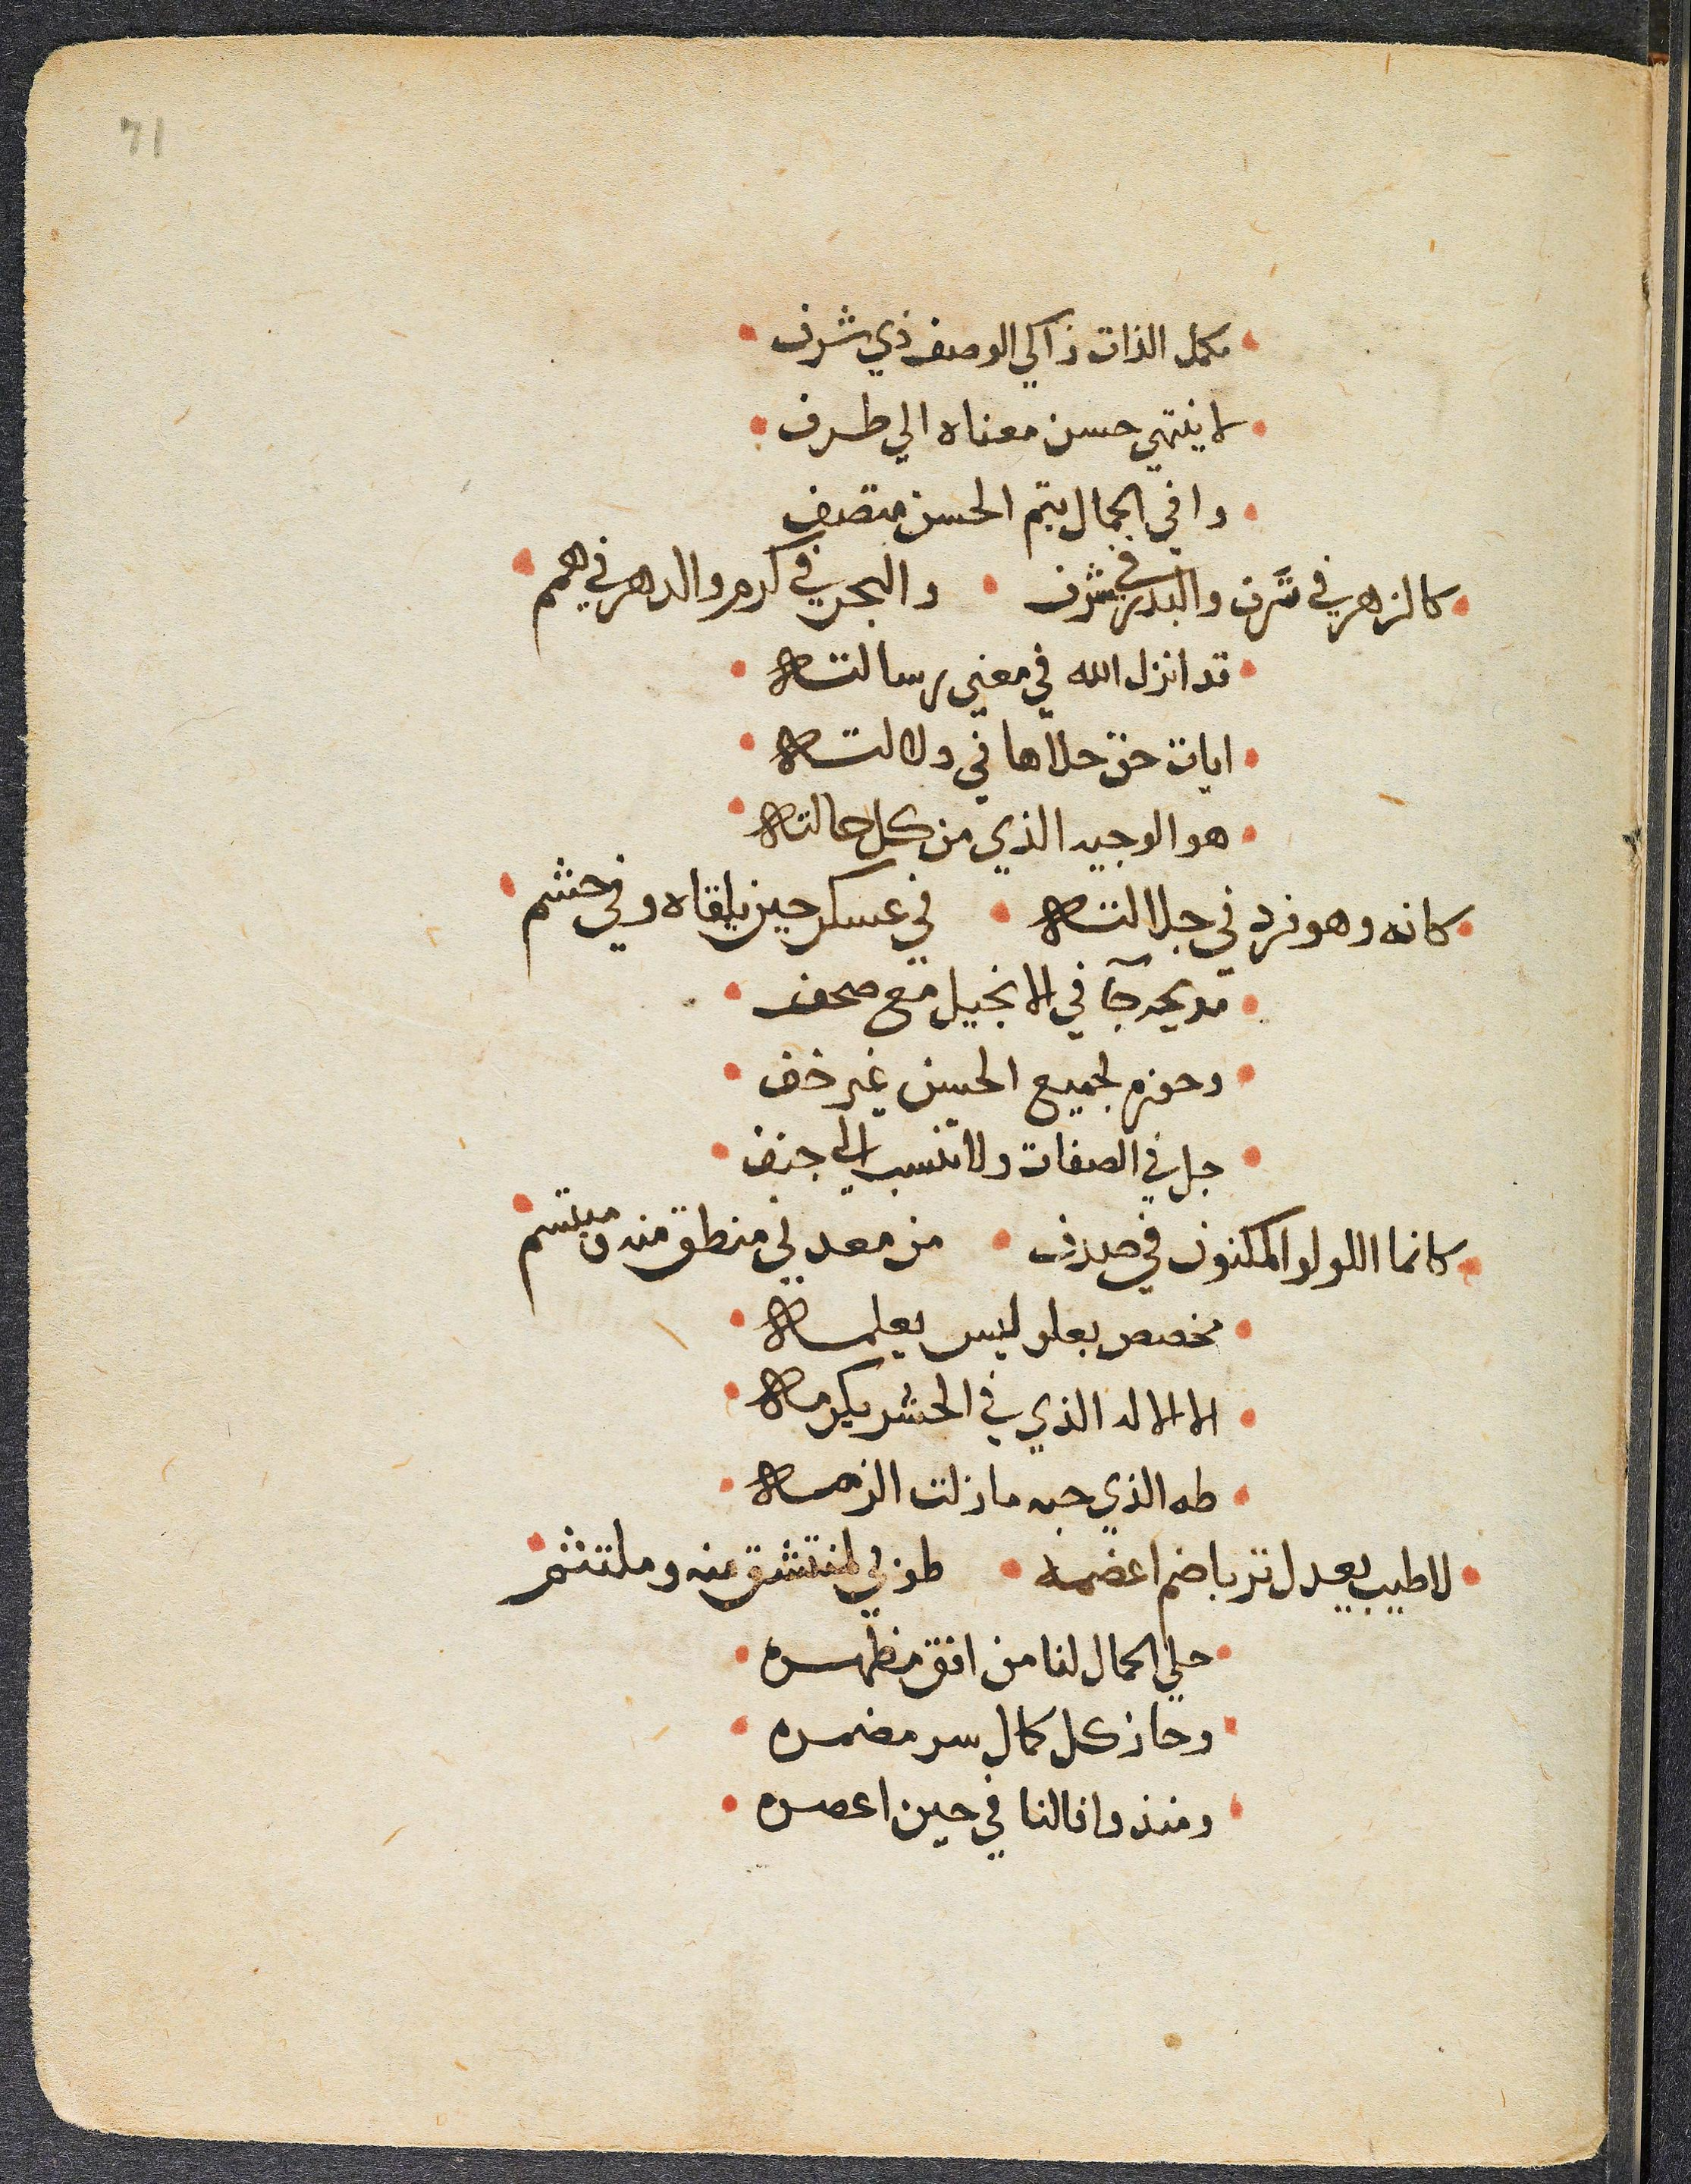 71
مكمل الذات زاكي الوصف ذي شرف
لا ينتهي حسن معناه الي طرف
وافي الجمال بتم الحسن متصف
كالزهر في ترف والبدر في شرف والبحر في كرم والدهر في همم
قد انزل الله في معني رسالته
ايات حق حلاها في دلالته
هو الوجيه الذي من كل حالته
كانه وهو فرد في جلالته في عسكر حين تلقاه وفي حشم
مديحه جآ في الانجيل مع صحف
وحوزه لجميع الحسن غير خف
جل في الصفات ولا تنسب الي جنف
كانما اللولو المكنون في صدف من معدني منطق منه ومبتسم
مخصص بعلو ليس يعلمه
الا الاله الذي في الحشر يكرمه
طه الذي حبه مازلت الزمه
لا طيب يعدل تربا ضم اعضمه طوبي لمنتشق منه وملتثم
جلي الجمال لنا من افق مظهره
وحاز كل كمال سر مضمره
ومنذ وافا لنا في حين اعصره